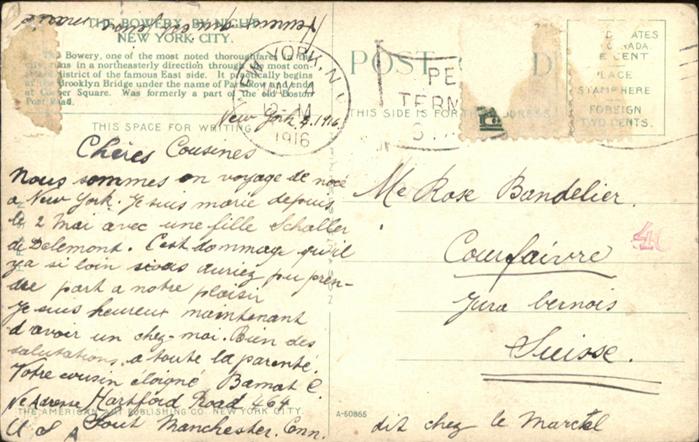 THE BOWERY, BY NIGHT,
NEW YORK CITY.
The Bowery, one of the most noted thoroughfares of the
city runs in a northeasterly direction through the most con-
gested district of the famous East side. It practically begins
at the Brooklyn Bridge under the name of Park Row and ends
at Cooper Square. Was formerly a part of the old Boston
Post Road.
THIS SPACE FOR WRITING
NEW YORK, N.Y.
1916
POST
THIS SIDE FOR THE ADDRESS
PLACE
STAMP HERE
FOREIGN
TWO CENTS.
New York 4. 1916
Chères Cousines
Nous sommes en voyage de noce
a New York. Je suis marie depuis
le 2 Mai avec une fille Schaller
de Delemont. C'est dommage qu'il
y a si loin vous auriez pu pren-
dre part a notre plaisir
Je suis heureux maintenant
d'avoir un chez-moi. Bien des
salutations a toute la parenté.
Votre cousin éloigné Bamat C.
Hartford Road 464
South Manchester. Conn.
U S A
Mle Rose Bandelier.
Courfaivre
Jura bernois
Suisse.
dit chez le Marcel
THE AMERICAN ART PUBLISHING CO. NEW YORK CITY.
A-60865